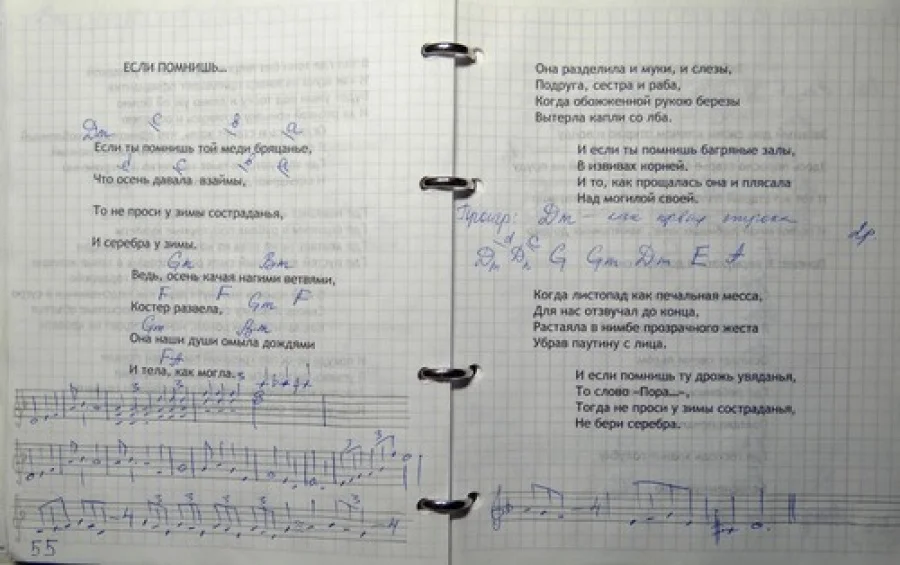 ЕСЛИ ПОМНИШЬ...
Dm C B A
Если ты помнишь той меди бряцанье,
Что осень давала взаймы,
То не проси у зимы состраданья,
И серебра у зимы.
Gm Bm
Ведь, осень качая нагими ветвями,
F F Gm F
Костер развела,
Gm Bm
Она наши души омыла дождями
И тела, как могла.
3 3 3
3
3 3 3 3 3
4 4
55
Она разделила и муки, и слезы,
Подруга, сестра и раба,
Когда обожженной рукою березы
Вытерла капли со лба.
И если ты помнишь багряные залы,
В извивах корней.
И то, как прощалась она и плясала
Над могилой своей.
Проигр: Dm - как первая строка
G Gm Dm E A
Когда листопад как печальная месса,
Для нас отзвучал до конца,
Растаяла в нимбе прозрачного жеста
Убрав паутину с лица.
И если помнишь ту дрожь увяданья,
То слово «Пора...»,
Тогда не проси у зимы состраданья,
Не бери серебра.
4